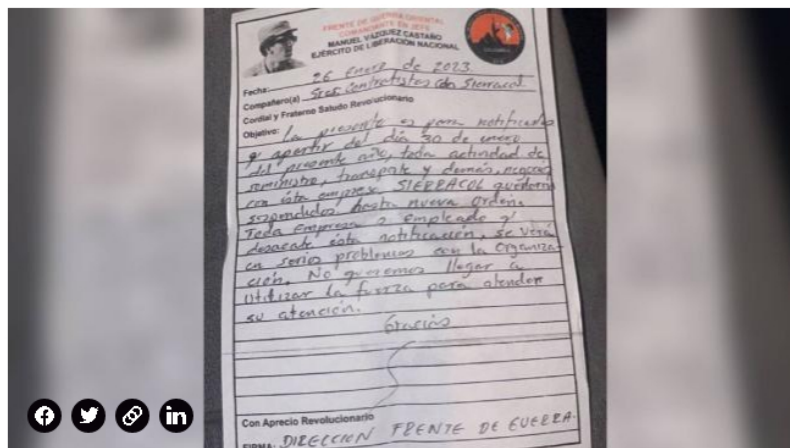 FRENTE DE GUERRA ORIENTAL
COMANDANTE EN JEFE
MANUEL VÁZQUEZ CASTAÑO
EJÉRCITO DE LIBERACIÓN NACIONAL
Fecha: 26 Enero de 2023
Compañero(a) Sres Contratistas con Sierracol.
Cordial y Fraterno Saludo Revolucionario
Objetivo: La presente es para notificarles
q' apartir del día 30 de enero
del presente año, toda actividad de
suministro, transporte y demás, negocios
con ésta empresa SIERRACOL quedaran
suspendidos hasta nueva orden.
Toda Empresa o empleado q'
desacate ésta notificación, se verá
en serios problemas con la Organiza-
ción. No queremos llegar a
Utilizar la fuerza para atender
su atención.
Gracias
Con Aprecio Revolucionario
FIRMA: DIRECCION FRENTE DE GUERRA.
in